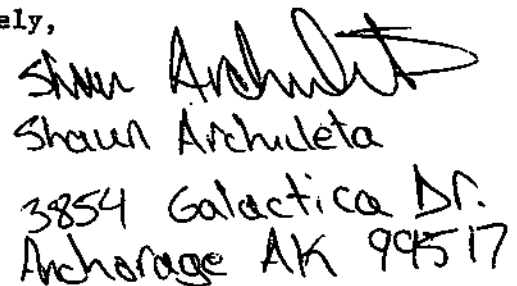 ely,
Shaun Archuleta
Shaun Archuleta
3854 Galactica Dr.
Anchorage AK 99517